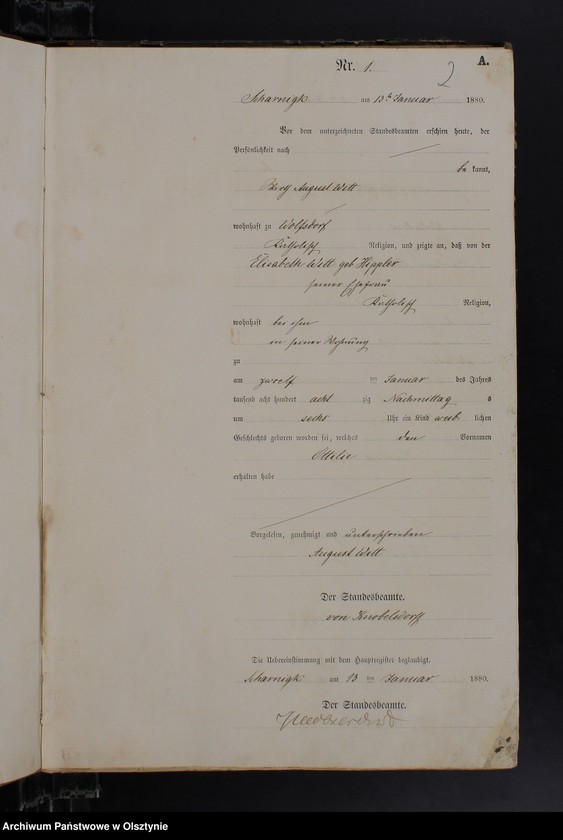 Nr. 1.
2
A.
Scharnigk am 13ten Januar 1880.
Vor dem unterzeichneten Standesbeamten erschien heute, der
Persönlichkeit nach
be kannt,
August Witt
wohnhaft zu Wolfsdorf
Katholisch Religion, und zeigte an, daß von der
Elisabeth Witt geb Hippler
seiner Ehefrau
Katholisch Religion,
wohnhaft bei ihm
in seiner Wohnung
zu
am zwölf ten Januar des Jahres
tausend acht hundert acht zig Nachmittag s
um sechs Uhr ein Kind weib lichen
Geschlechts geboren worden sei, welches den Vornamen
Ottilie
erhalten habe
Vorgelesen, genehmigt und unterschrieben
August Witt
Der Standesbeamte.
von Knobelsdorff
Die Uebereinstimmung mit dem Hauptregister beglaubigt.
Scharnigk am 13 ten Januar 1880.
Der Standesbeamte.
Archiwum Państwowe w Olsztynie